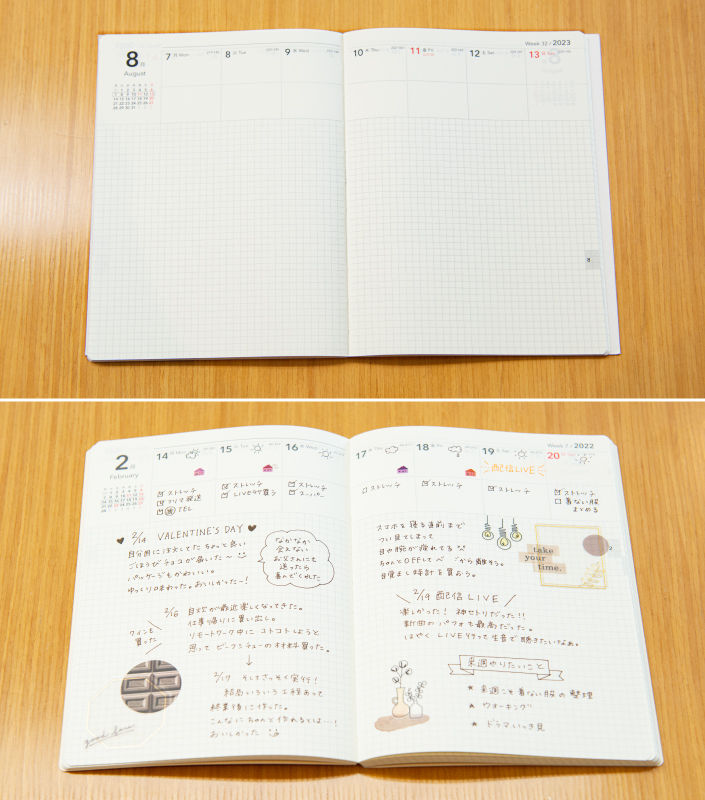 8月
August
7 月 Mon
8 火 Tue
9 水 Wed
10 木 Thu
11 金 Fri
12 土 Sat
Week 32 / 2023
13 日 Sun
8
2月
February
14 月 Mon
15 火 Tue
16 水 Wed
17 木 Thu
18 金 Fri
19 土 Sat
Week 7 / 2022
20 日 Sun
ストレッチ
フリマ発送
TEL
ストレッチ
LIVEチケ買う
ストレッチ
スーパー
ストレッチ
ストレッチ
配信LIVE
ストレッチ
ストレッチ
着ない服
まとめる
2/14 VALENTINE'S DAY
自分用に注文してた ちょっと良い
ごほうびチョコが届いた〜
パッケージもかわいい。
ゆっくり味わった。おいしかった〜!
なかなか
会えない
お父さんにも
送ったら
喜んでくれた
2/16 自炊が最近楽しくなってきた。
仕事帰りに買い出し。
リモートワーク中に コトコトしようと
思って ビーフシチューの材料買った。
ワインも
買った
↓
2/17 そしてさっそく実行!
結局いろいろ工程あって
終業後に作った。
こんなにちゃんと作れるとは…!
おいしかった
スマホを寝る直前まで
つい見てしまって
目や腕が疲れてる
ちゃんとOFFして から離そう。
目覚まし時計を買おう。
take
your
time.
2
2/19 配信LIVE
楽しかった! 神セトリだった!!
新曲のパフォも最高だった。
はやく LIVE行って生音で聴きたいなぁ。
来週やりたいこと
★ 来週こそ着ない服の整理
★ ウォーキング
★ ドラマいっき見